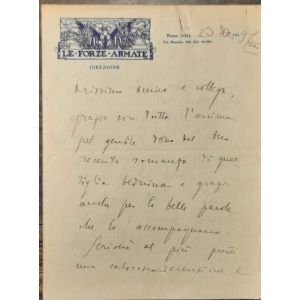 LE · FORZE · ARMATE
DIREZIONE
Roma
Carissimo amico e collega,
grazie con tutta l'anima
pel gentile dono del tuo
recente romanzo di
e grazie
anche per le belle parole
che lo accompagnano.
Scriverò al più presto
una calorosa recensione e